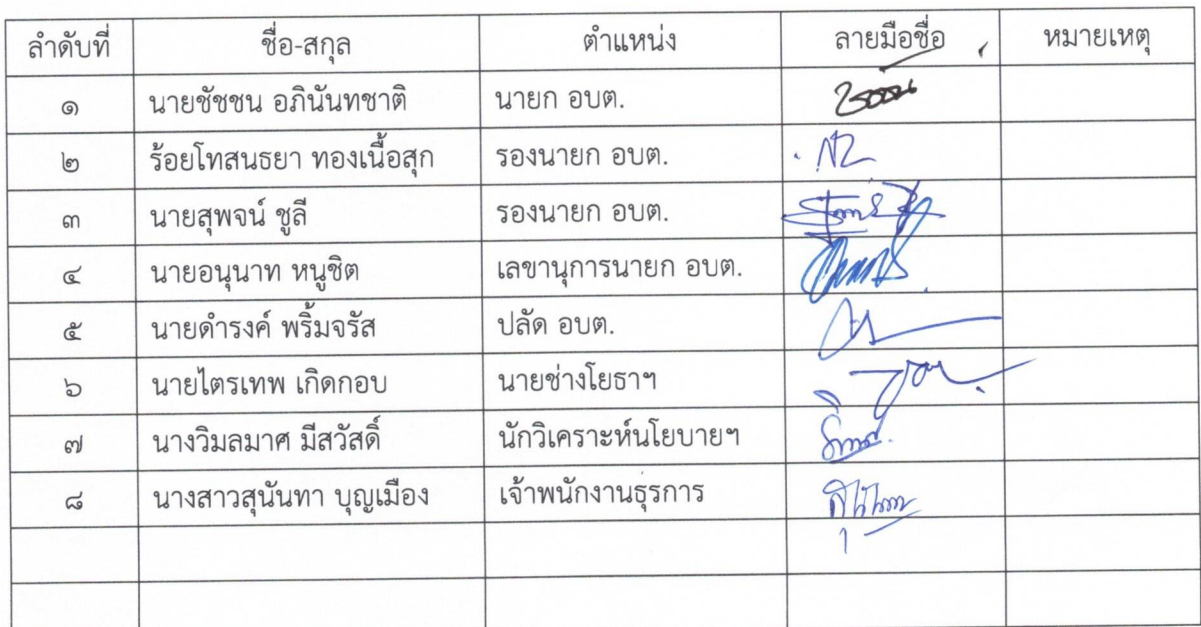 ลำดับที่ ชื่อ-สกุล ตำแหน่ง ลายมือชื่อ หมายเหตุ
๑ นายชัชชน อภินันทชาติ นายก อบต.
๒ ร้อยโทสนธยา ทองเนื้อสุก รองนายก อบต.
๓ นายสุพจน์ ชูลี รองนายก อบต.
๔ นายอนุนาท หนูชิต เลขานุการนายก อบต.
๕ นายดำรงค์ พริ้มจรัส ปลัด อบต.
๖ นายไตรเทพ เกิดกอบ นายช่างโยธาฯ
๗ นางวิมลมาศ มีสวัสดิ์ นักวิเคราะห์นโยบายฯ
๘ นางสาวสุนันทา บุญเมือง เจ้าพนักงานธุรการ